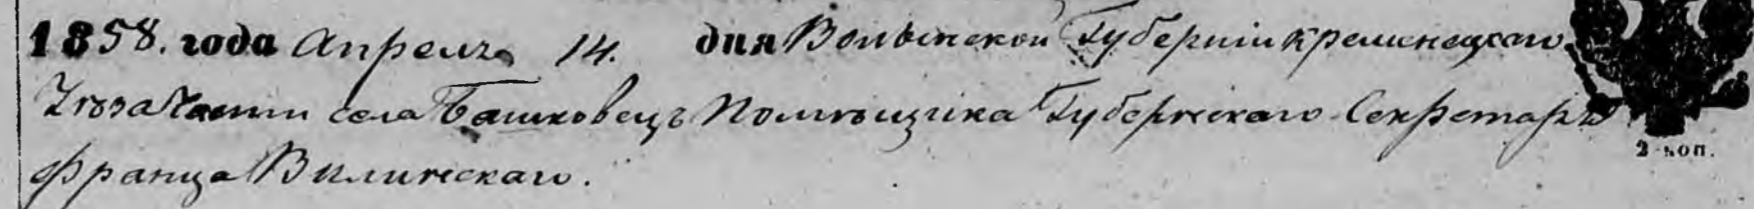 1858. года Апреля 14. дня Волынской Губернiи Кременецкаго
Уѣзда Части села Башковецъ Помѣщика Губернскаго Секретаря
Франца Вилинскаго.
2 коп.